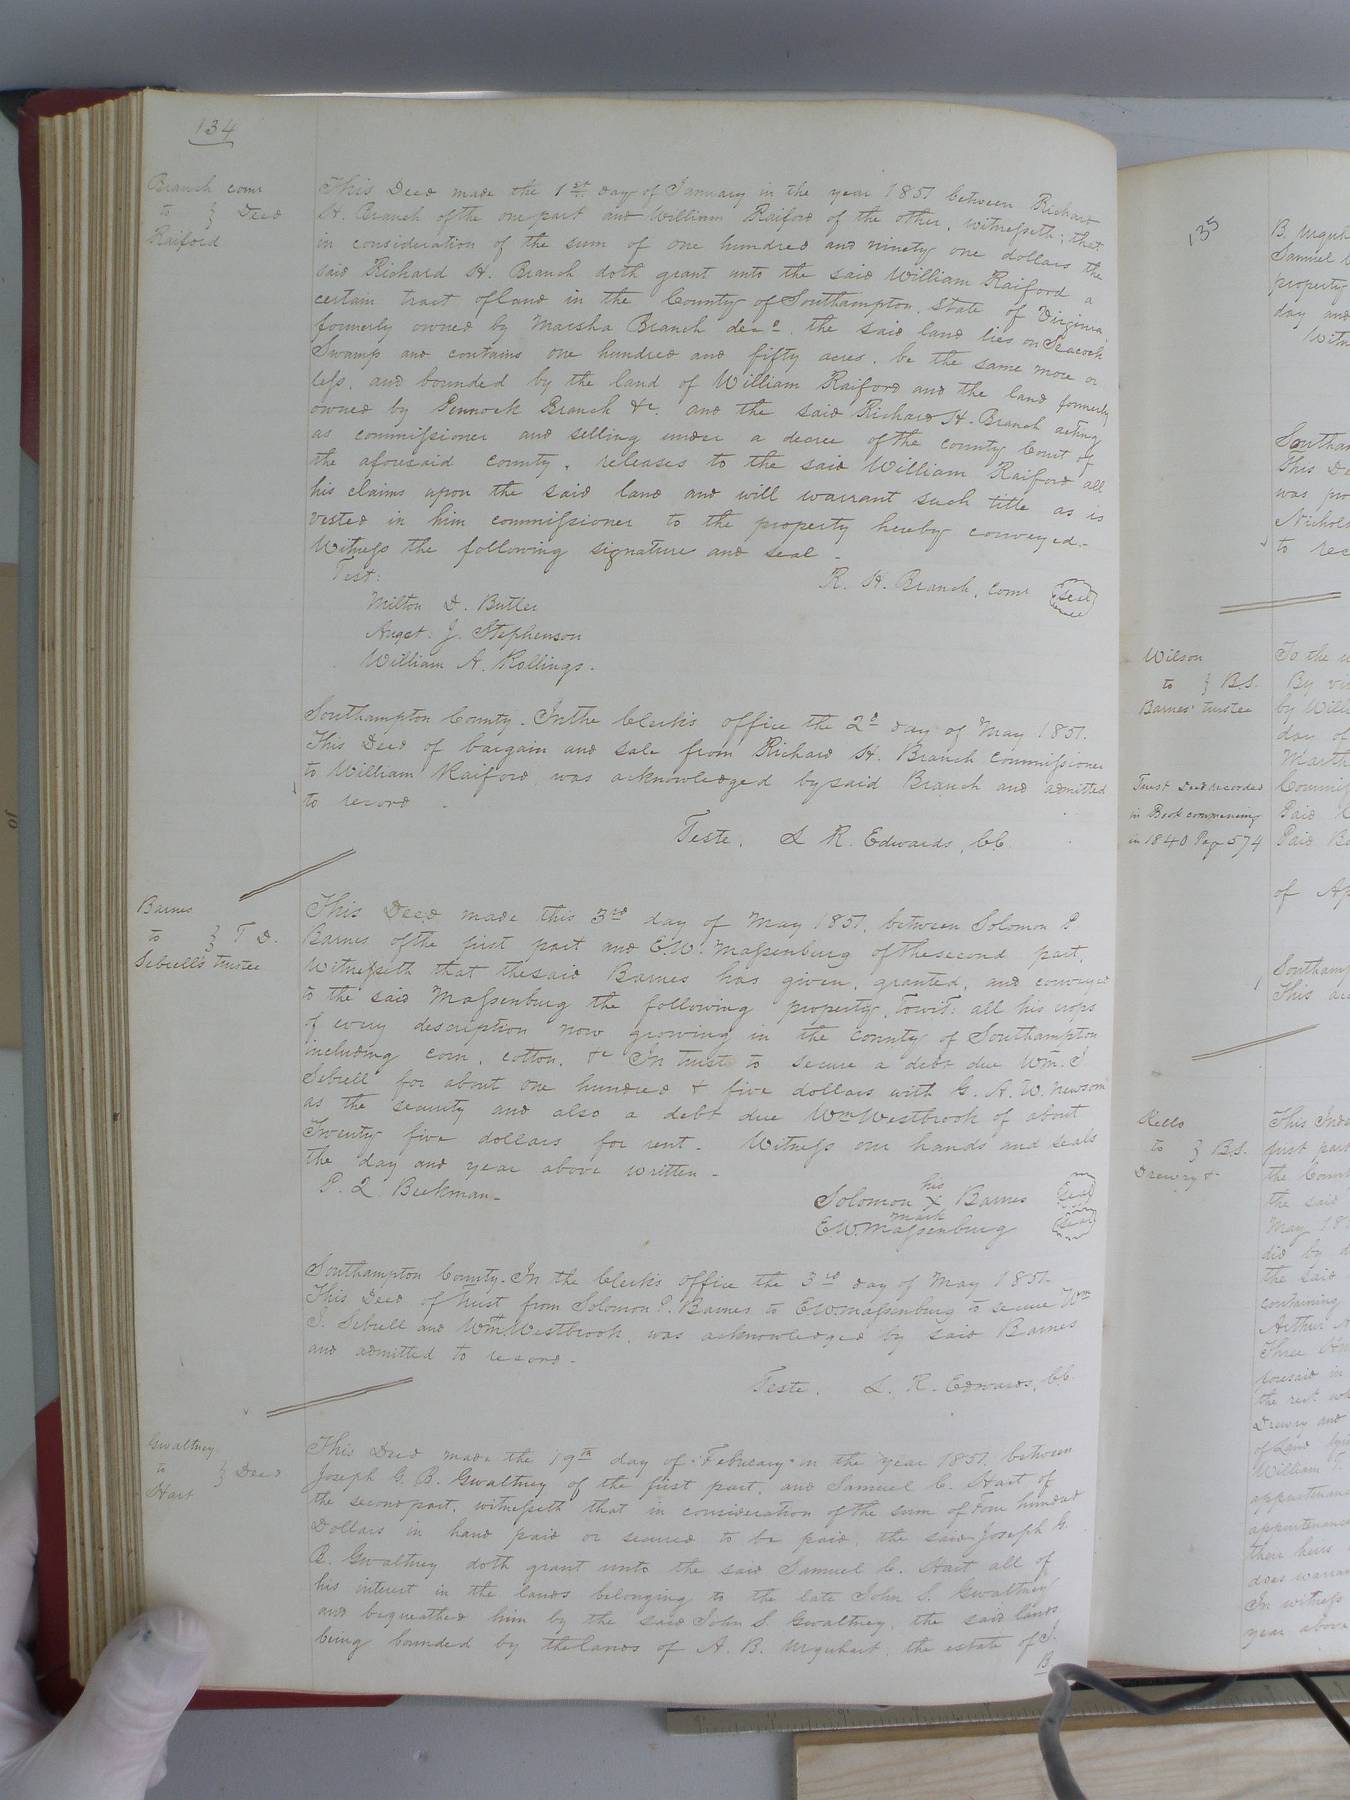 134
Branch comr
to } Deed
Raiford
This Deed made the 1st day of January in the year 1851 between Richard
H. Branch of the one part and William Raiford of the other, witnesseth; that
in consideration of the sum of one hundred and ninety one dollars the
said Richard H. Branch doth grant unto the said William Raiford a
certain tract of land in the County of Southampton, State of Virginia
formerly owned by Marsha Branch decd. the said land lies on Seacock
Swamp and contains one hundred and fifty acres, be the same more or
less, and bounded by the land of William Raiford and the land formerly
owned by Pennock Branch &c. and the said Richard H. Branch acting
as commissioner and selling under a decree of the county Court of
the aforesaid county, releases to the said William Raiford all
his claims upon the said land and will warrant such title as is
vested in him commissioner to the property hereby conveyed.
Witness the following signature and seal.
Test: R. H. Branch, comr seal
Milton D. Butler
Augst. J. Stephenson
William A. Rollings.
Southampton County. In the Clerk's office the 2d day of May 1851.
This Deed of bargain and sale from Richard H. Branch Commissioner
to William Raiford was acknowledged by said Branch and admitted
to record.
Teste, L R. Edwards, CC.
Barnes
to } T D.
Sebrell's trustee
This Deed made this 3rd day of May 1851. between Solomon P.
Barnes of the first part and E.W. Massenburg of the second part,
Witnesseth that the said Barnes has given, granted, and conveyed
to the said Massenburg the following property, Towit: all his crops
of every description now growing in the county of Southampton
including corn, cotton, &c In trust to secure a debt due Wm. J.
Sebrell for about one hundred & five dollars with G. A. W. Newsom
as the security and also a debt due Wm Westbrook of about
Twenty five dollars for rent. Witness our hands and seals
the day and year above written.
P. Q Beekman his
Solomon X Barnes seal
mark
E.W. Massenburg seal
Southampton County. In the Clerk's office the 3rd day of May 1851.
This Deed of trust from Solomon P. Barnes to E W Massenburg to secure Wm
J. Sebrell and Wm Westbrook, was acknowledged by said Barnes
and admitted to record.
Teste, L. R. Edwards, CC.
Gwaltney
to } Deed
Hart
This Deed made the 19th day of February in the year 1851. between
Joseph G. B. Gwaltney of the first part, and Samuel C. Hart of
the second part, witnesseth that in consideration of the sum of Four hundred
Dollars in hand paid or secured to be paid, the said Joseph G.
B. Gwaltney doth grant unto the said Samuel C. Hart all of
his interest in the lands belonging to the late John S. Gwaltney
and bequeathed him by the said John S. Gwaltney, the said lands
being bounded by the lands of A. B. Urquhart, the estate of J.
B
135
B. Urquh
Samuel
property
day and
Witn
Southam
This De
was pro
Nichol
to rec
Wilson
to } B.S.
Barnes' trustee
Trust Deed recorded
in Book commencing
in 1840 Page 574
To the
By vir
by Willi
day of
Marth
Commis
Paid
Paid
of Ap
Southamp
This
Kello
to } B.S.
Drewry &
This Inde
first part
the Count
the said
May 185
did by
the said
containing
Arthur
Three
foresaid in
the rect.
Drewry and
of Land
William
appurtenanc
appurtenance
their heirs
does warran
In witness
year above